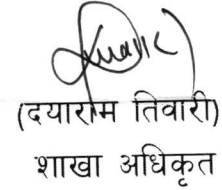 (दयाराम तिवारी)
शाखा अधिकृत